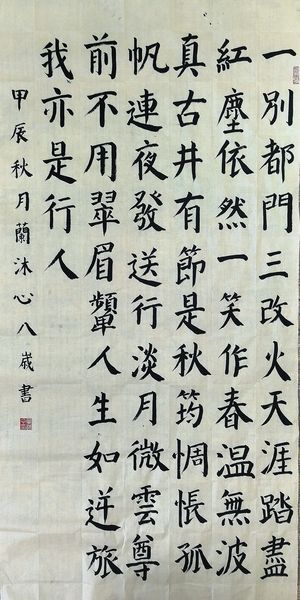 一別都門三改火天涯踏盡
紅塵依然一笑作春温無波
真古井有節是秋筠惆悵孤
帆連夜發送行淡月微雲尊
前不用翠眉顰人生如逆旅
我亦是行人
甲辰秋月蘭沐心八歲書